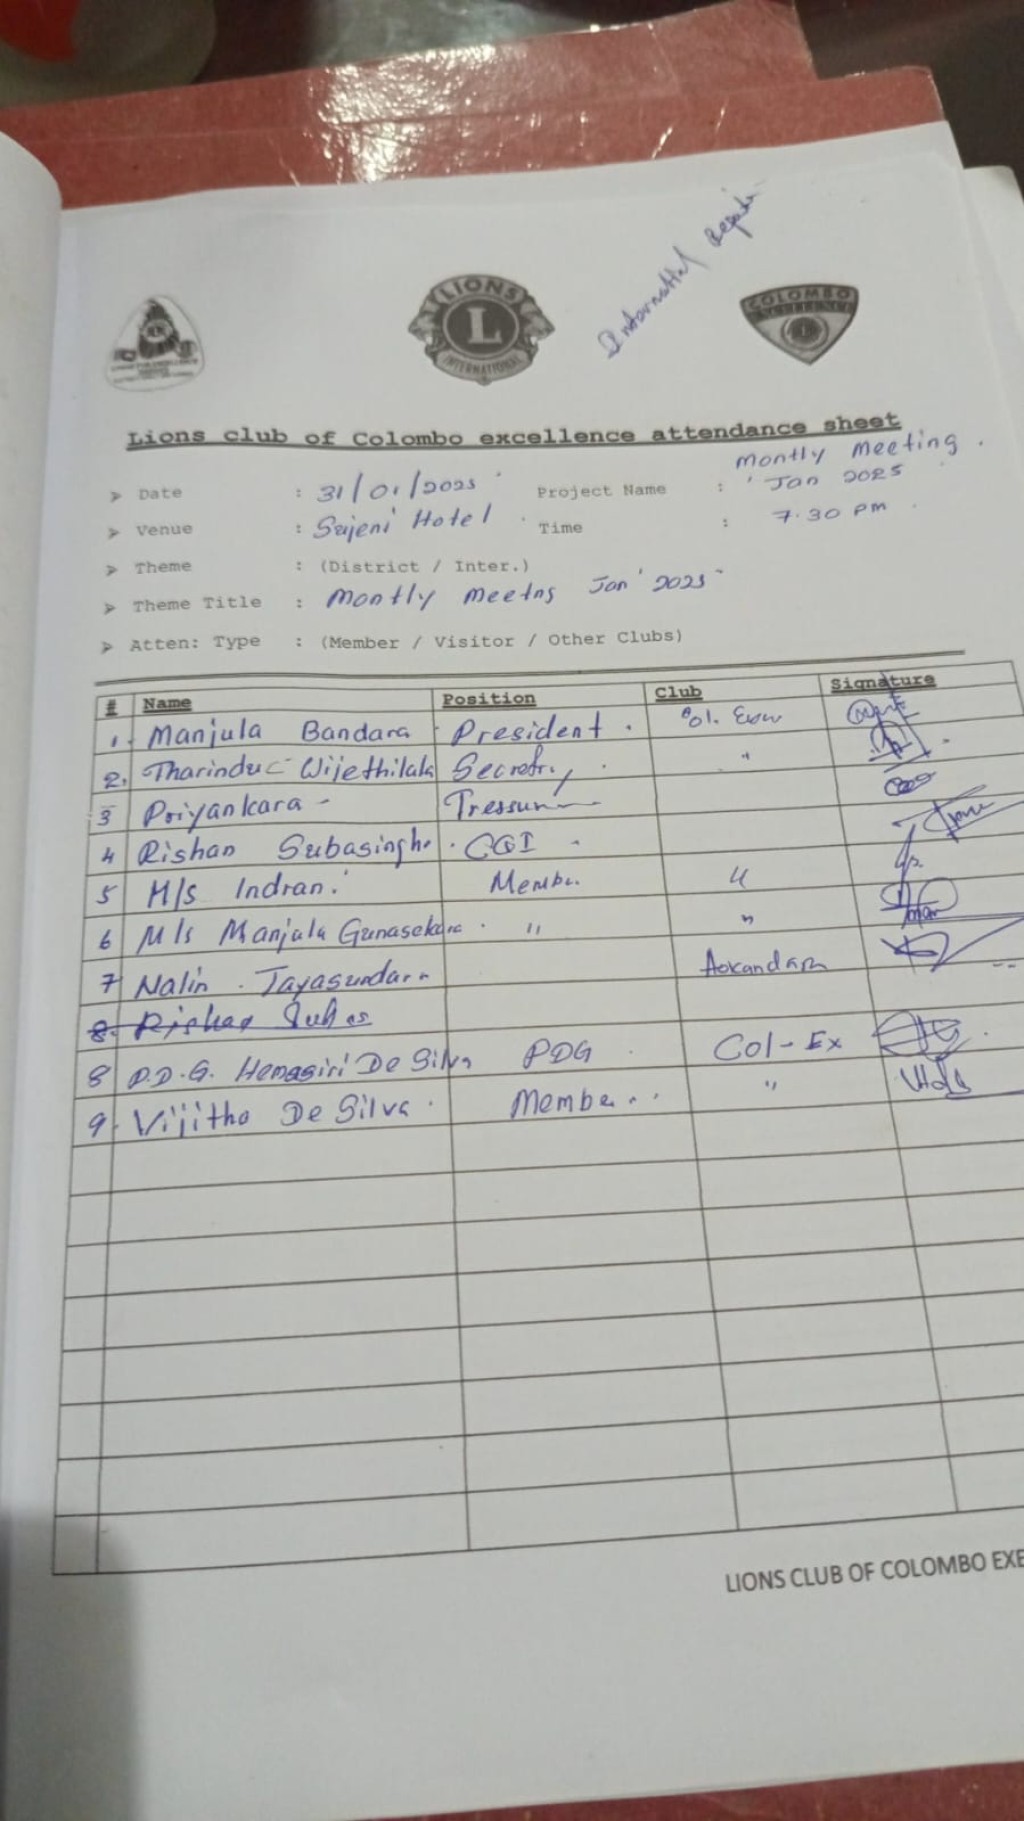 LIONS
L
INTERNATIONAL
COLOMBO
Lions club of Colombo excellence attendance sheet
➢ Date : 31/01/2025 Project Name : Montly Meeting Jan 2025
➢ Venue : Sujeni Hotel Time : 7.30 PM
➢ Theme : (District / Inter.)
➢ Theme Title : Montly Meetng Jan' 2025
➢ Atten: Type : (Member / Visitor / Other Clubs)
# Name Position Club Signature
1. Manjula Bandara President Col.
2. Tharindu Wijethilaka Secretry "
3 Priyankara
4 Rishan Subasinghe
5 M/s Indrani Member "
6 M/s Manjula Gunasekara " "
7 Nalin Jayasundara
8. Rishan
8 P.D.G. Hemasiri De Silva PDG Col-Ex
9. Vijitha De Silva Member "
LIONS CLUB OF COLOMBO EXE